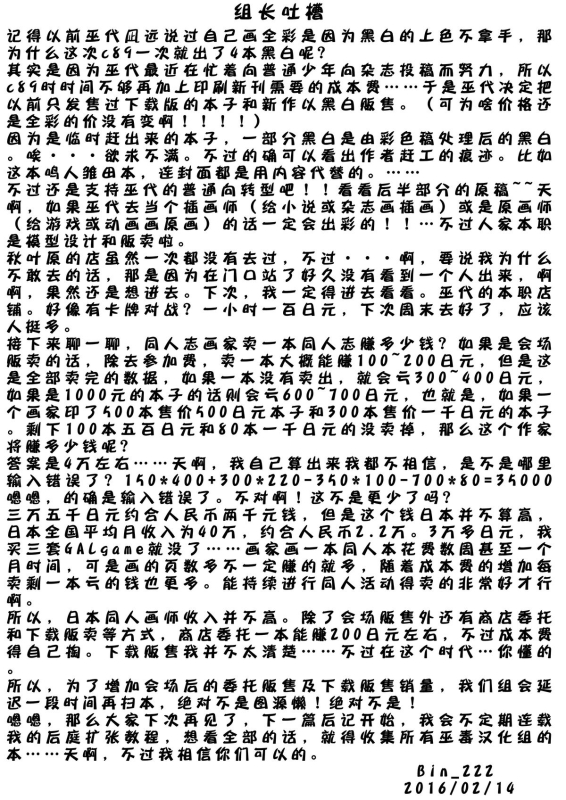 组长吐槽
记得以前巫代凪远说过自己画全彩是因为黑白的上色不拿手，那
为什么这次c89一次就出了4本黑白呢？
其实是因为巫代最近在忙着向普通少年向杂志投稿而努力，所以
c89时时间不够再加上印刷新刊需要的成本费……于是巫代决定把
以前只发售过下载版的本子和新作以黑白贩售。（可为啥价格还
是全彩的价没有变啊！！！！）
因为是临时赶出来的本子，一部分黑白是由彩色稿处理后的黑白
。唉···欲求不满。不过的确可以看出作者赶工的痕迹。比如
这本鸣人雏田本，连封面都是用内容代替的。……
不过还是支持巫代的普通向转型吧！！看看后半部分的原稿~~天
啊，如果巫代去当个插画师（给小说或杂志画插画）或是原画师
（给游戏或动画画原画）的话一定会出彩的！！…不过人家本职
是模型设计和贩卖啦。
秋叶原的店虽然一次都没有去过，不过···啊，要说我为什么
不敢去的话，那是因为在门口站了好久没有看到一个人出来，啊
啊，果然还是想进去。下次，我一定得进去看看。巫代的本职店
铺。好像有卡牌对战？一小时一百日元，下次周末去好了，应该
人挺多。
接下来聊一聊，同人志画家卖一本同人志赚多少钱？如果是会场
贩卖的话，除去参加费，卖一本大概能赚100~200日元，但是这
是全部卖完的数据，如果一本没有卖出，就会亏300~400日元，
如果是1000元的本子的话则会亏600~700日元，也就是，如果一
个画家印了500本售价500日元本子和300本售价一千日元的本子
。剩下100本五百日元和80本一千日元的没卖掉，那么这个作家
将赚多少钱呢？
答案是4万左右……天啊，我自己算出来我都不相信，是不是哪里
输入错误了？150*400+300*220-350*100-700*80=35000
嗯嗯，的确是输入错误了。不对啊！这不是更少了吗？
三万五千日元约合人民币两千元钱，但是这个钱日本并不算高，
日本全国平均月收入为40万，约合人民币2.2万。3万多日元，我
买三套GALgame就没了……画家画一本同人本花费数周甚至一个
月时间，可是画的页数多不一定赚的就多，随着成本费的增加每
卖剩一本亏的钱也更多。能持续进行同人活动得卖的非常好才行
啊。
所以，日本同人画师收入并不高。除了会场贩售外还有商店委托
和下载贩卖等方式，商店委托一本能赚200日元左右，不过成本费
得自己掏。下载贩售我并不太清楚……不过在这个时代…你懂的
。
所以，为了增加会场后的委托贩售及下载贩售销量，我们组会延
迟一段时间再扫本，绝对不是图源懒！绝对不是！
嗯嗯，那么大家下次再见了，下一篇后记开始，我会不定期连载
我的后庭扩张教程，想看全部的话，就得收集所有巫毒汉化组的
本……天啊，不过我相信你们可以的。
Bin_222
2016/02/14